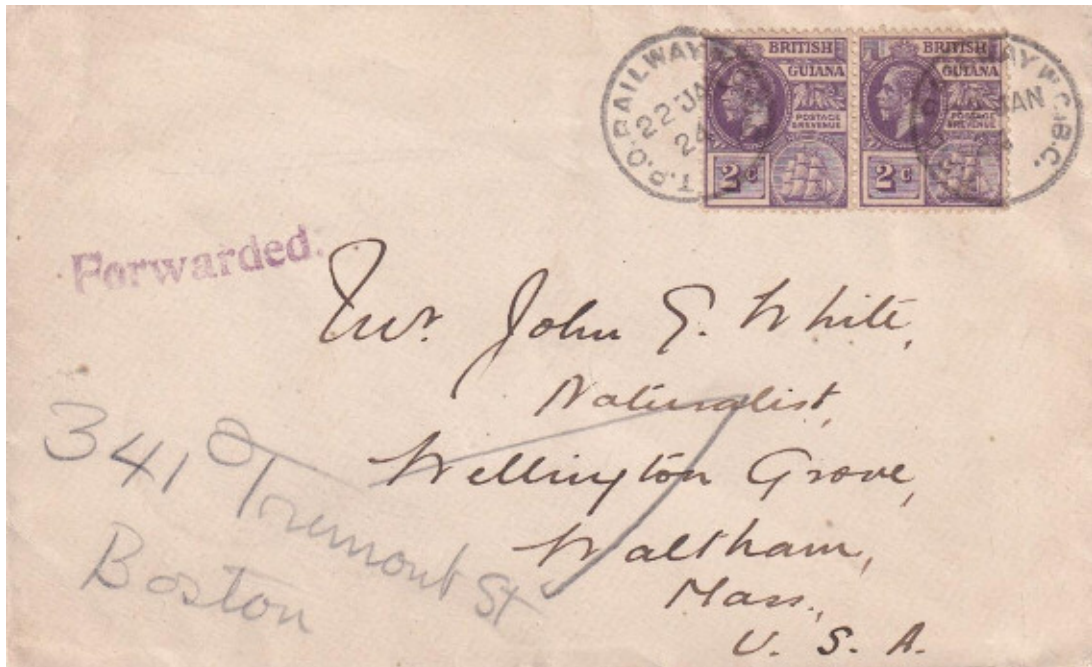 T.P.O. RAILWAY W.C.B.C.
22 JAN
24
BRITISH
GUIANA
POSTAGE
& REVENUE
2 C
BRITISH
GUIANA
POSTAGE
& REVENUE
2 C
JAN
24
Forwarded.
Mr. John E. White,
Naturalist,
Wellington Grove,
Waltham,
Mass.,
U. S. A.
341 Tremont St
Boston